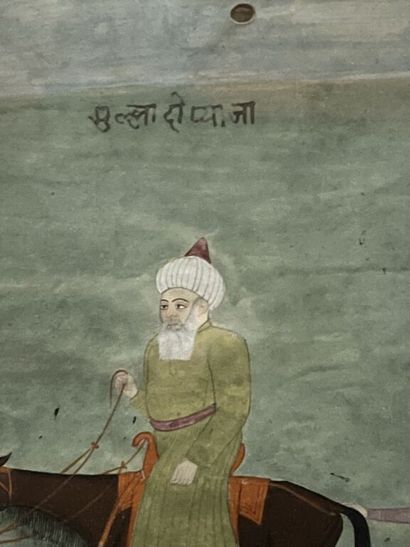 मुल्ला दो प्याजा